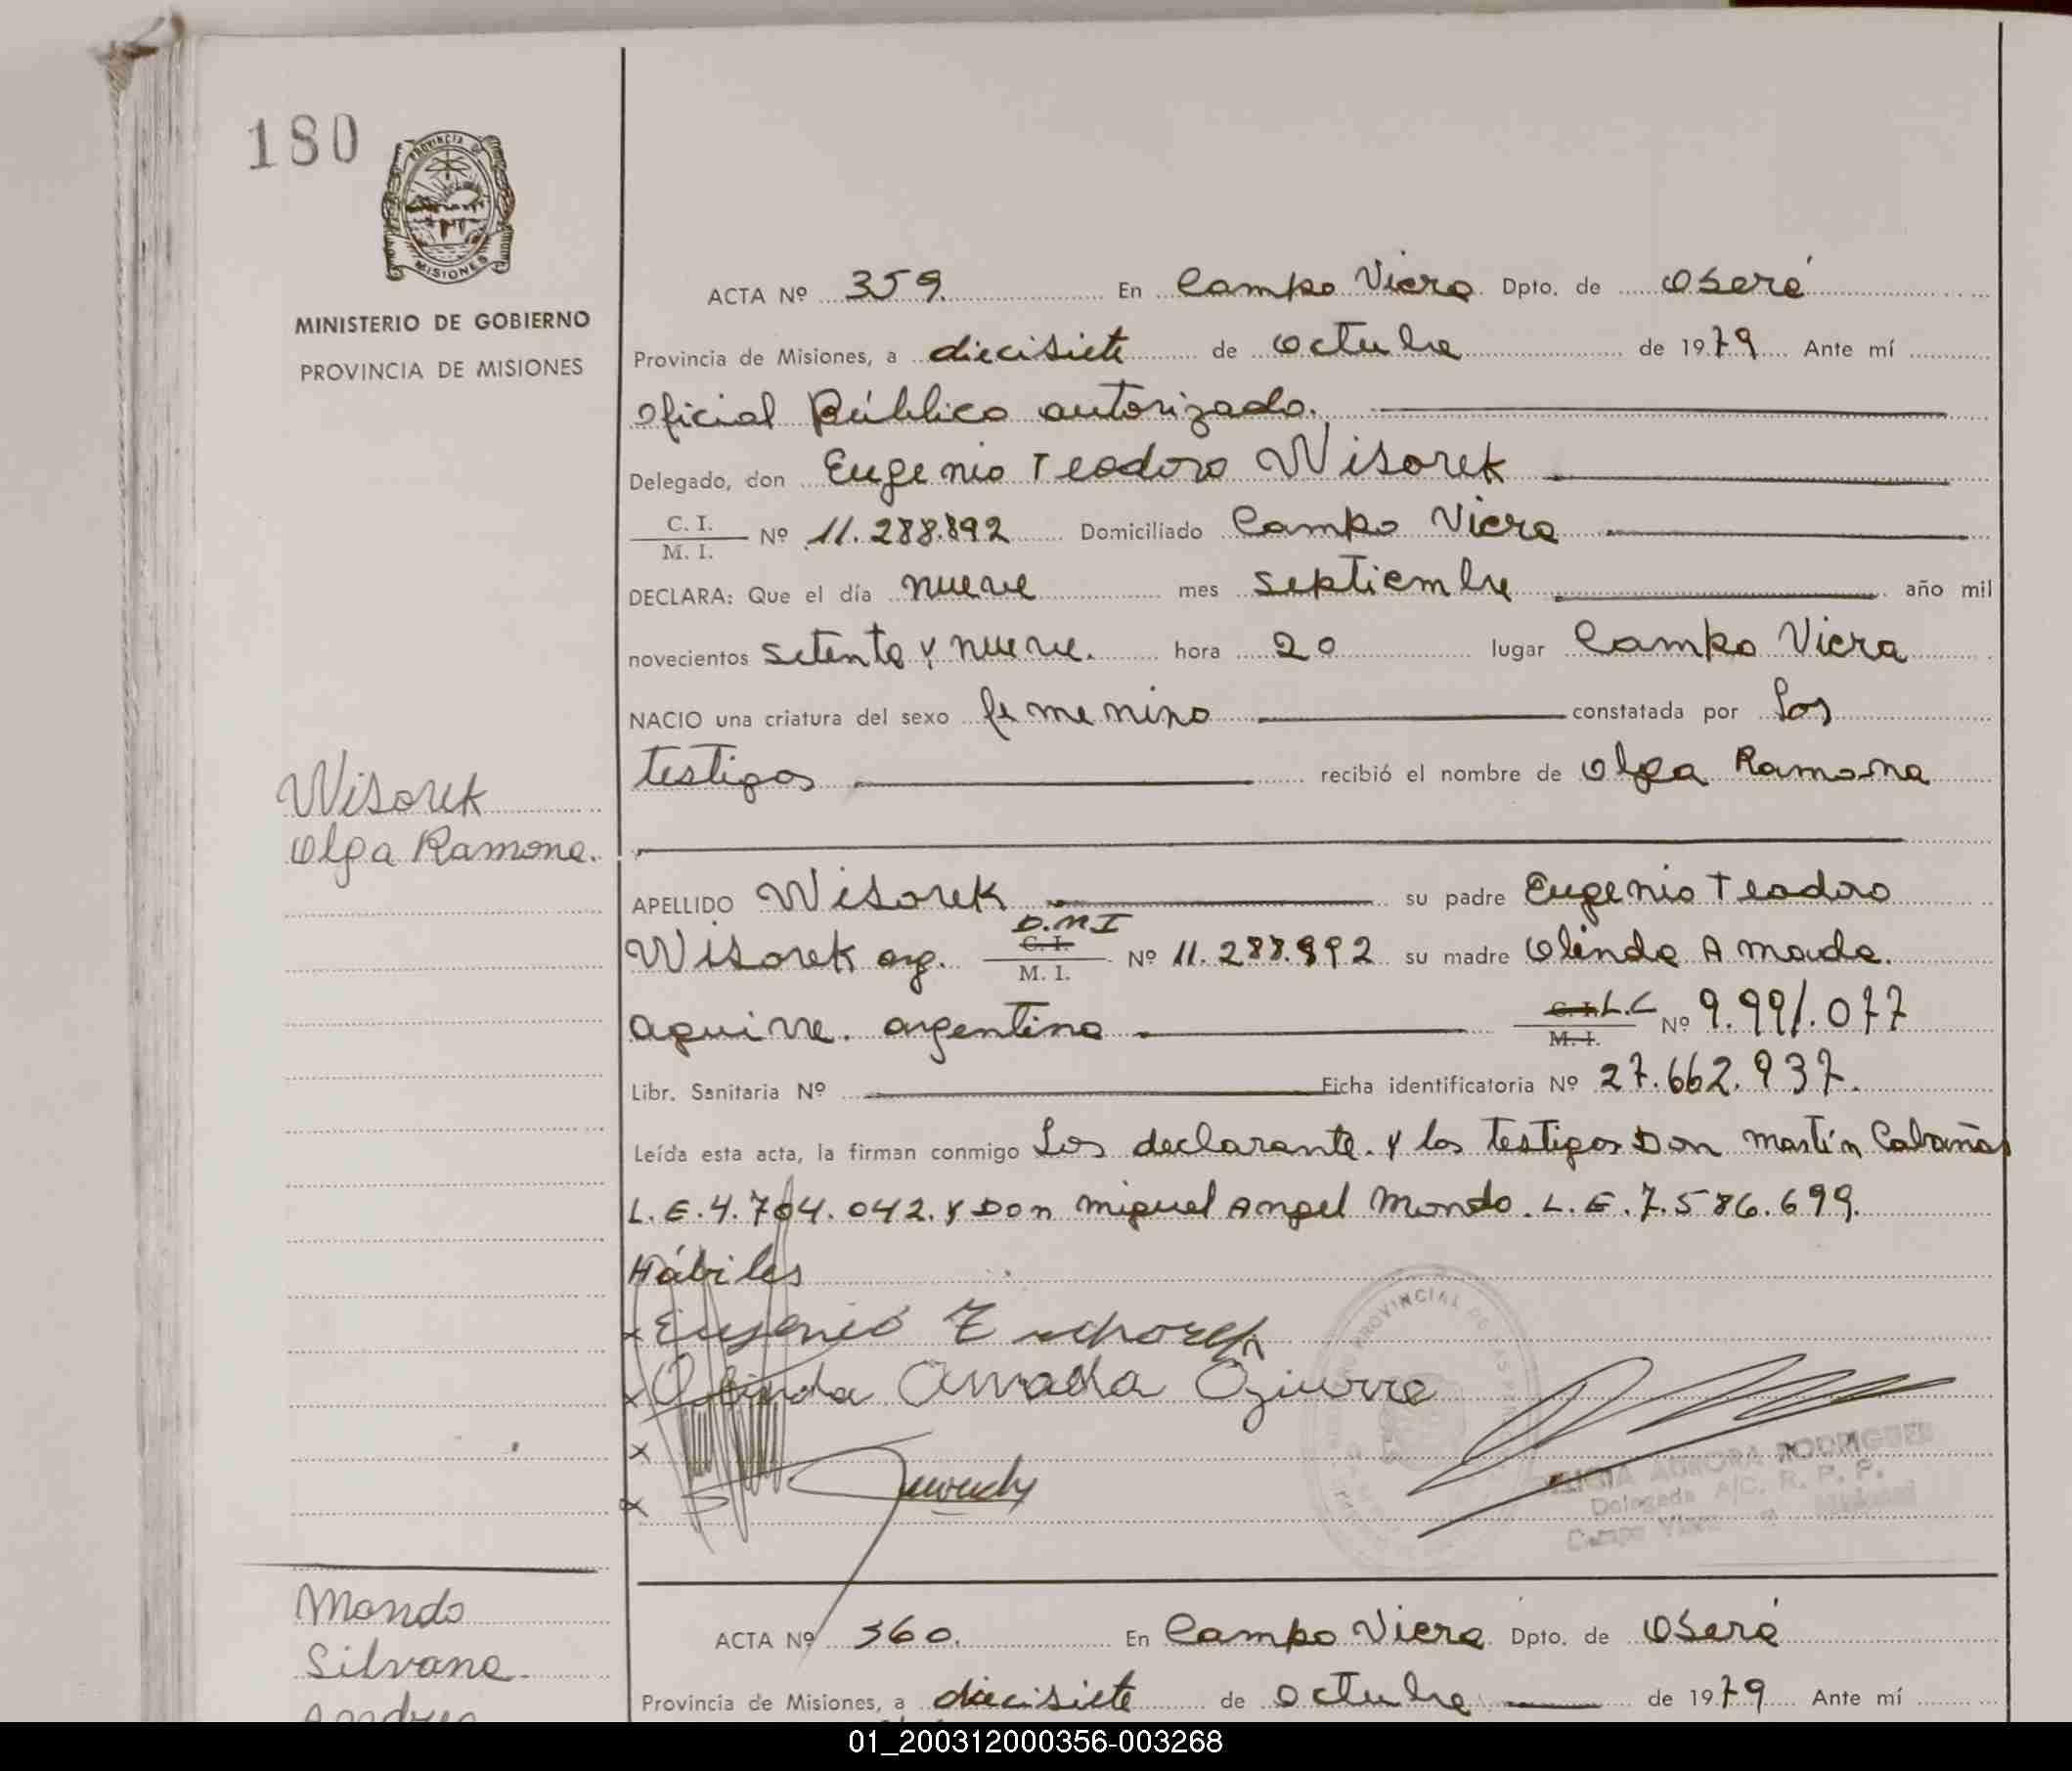 180
PROVINCIA DE
MISIONES
MINISTERIO DE GOBIERNO
PROVINCIA DE MISIONES
ACTA Nº 359. En Campo Viera Dpto. de Oberá
Provincia de Misiones, a diecisiete de Octubre de 1979 Ante mí
Oficial Público autorizado.
Delegado, don Eugenio Teodoro Wisorek
C. I.
M. I. Nº 11.288.892 Domiciliado Campo Viera
DECLARA: Que el día nueve mes septiembre año mil
novecientos setenta y nueve. hora 20 lugar Campo Viera
NACIO una criatura del sexo femenino constatada por Los
testigos recibió el nombre de Olga Ramona
Wisorek
Olga Ramona.
APELLIDO Wisorek su padre Eugenio Teodoro
D.N.I
Wisorek arg. C. I.
M. I. Nº 11.288.892 su madre Olinda Amada.
Aguirre. argentina C. I. L.C
M. I. Nº 9.991.077
Libr. Sanitaria Nº Ficha identificatoria Nº 27.662.937.
Leída esta acta, la firman conmigo Los declarante. y los testigos Don Martín Cabañas
L.E.4.704.042. y Don Miguel Angel Mondo. L.E.7.586.699.
Hábiles
x Eugenio T
x Olinda Amada
x
x
PROVINCIAL DE LAS PERSONAS
ALICIA AURORA RODRIGUEZ
Delegada A/C. R. P. P.
Campo Viera Misiones
Mondo
Silvana
Andrea
ACTA Nº 360. En Campo Viera Dpto. de Oberá
Provincia de Misiones, a diecisiete de Octubre de 1979 Ante mí
01_200312000356-003268